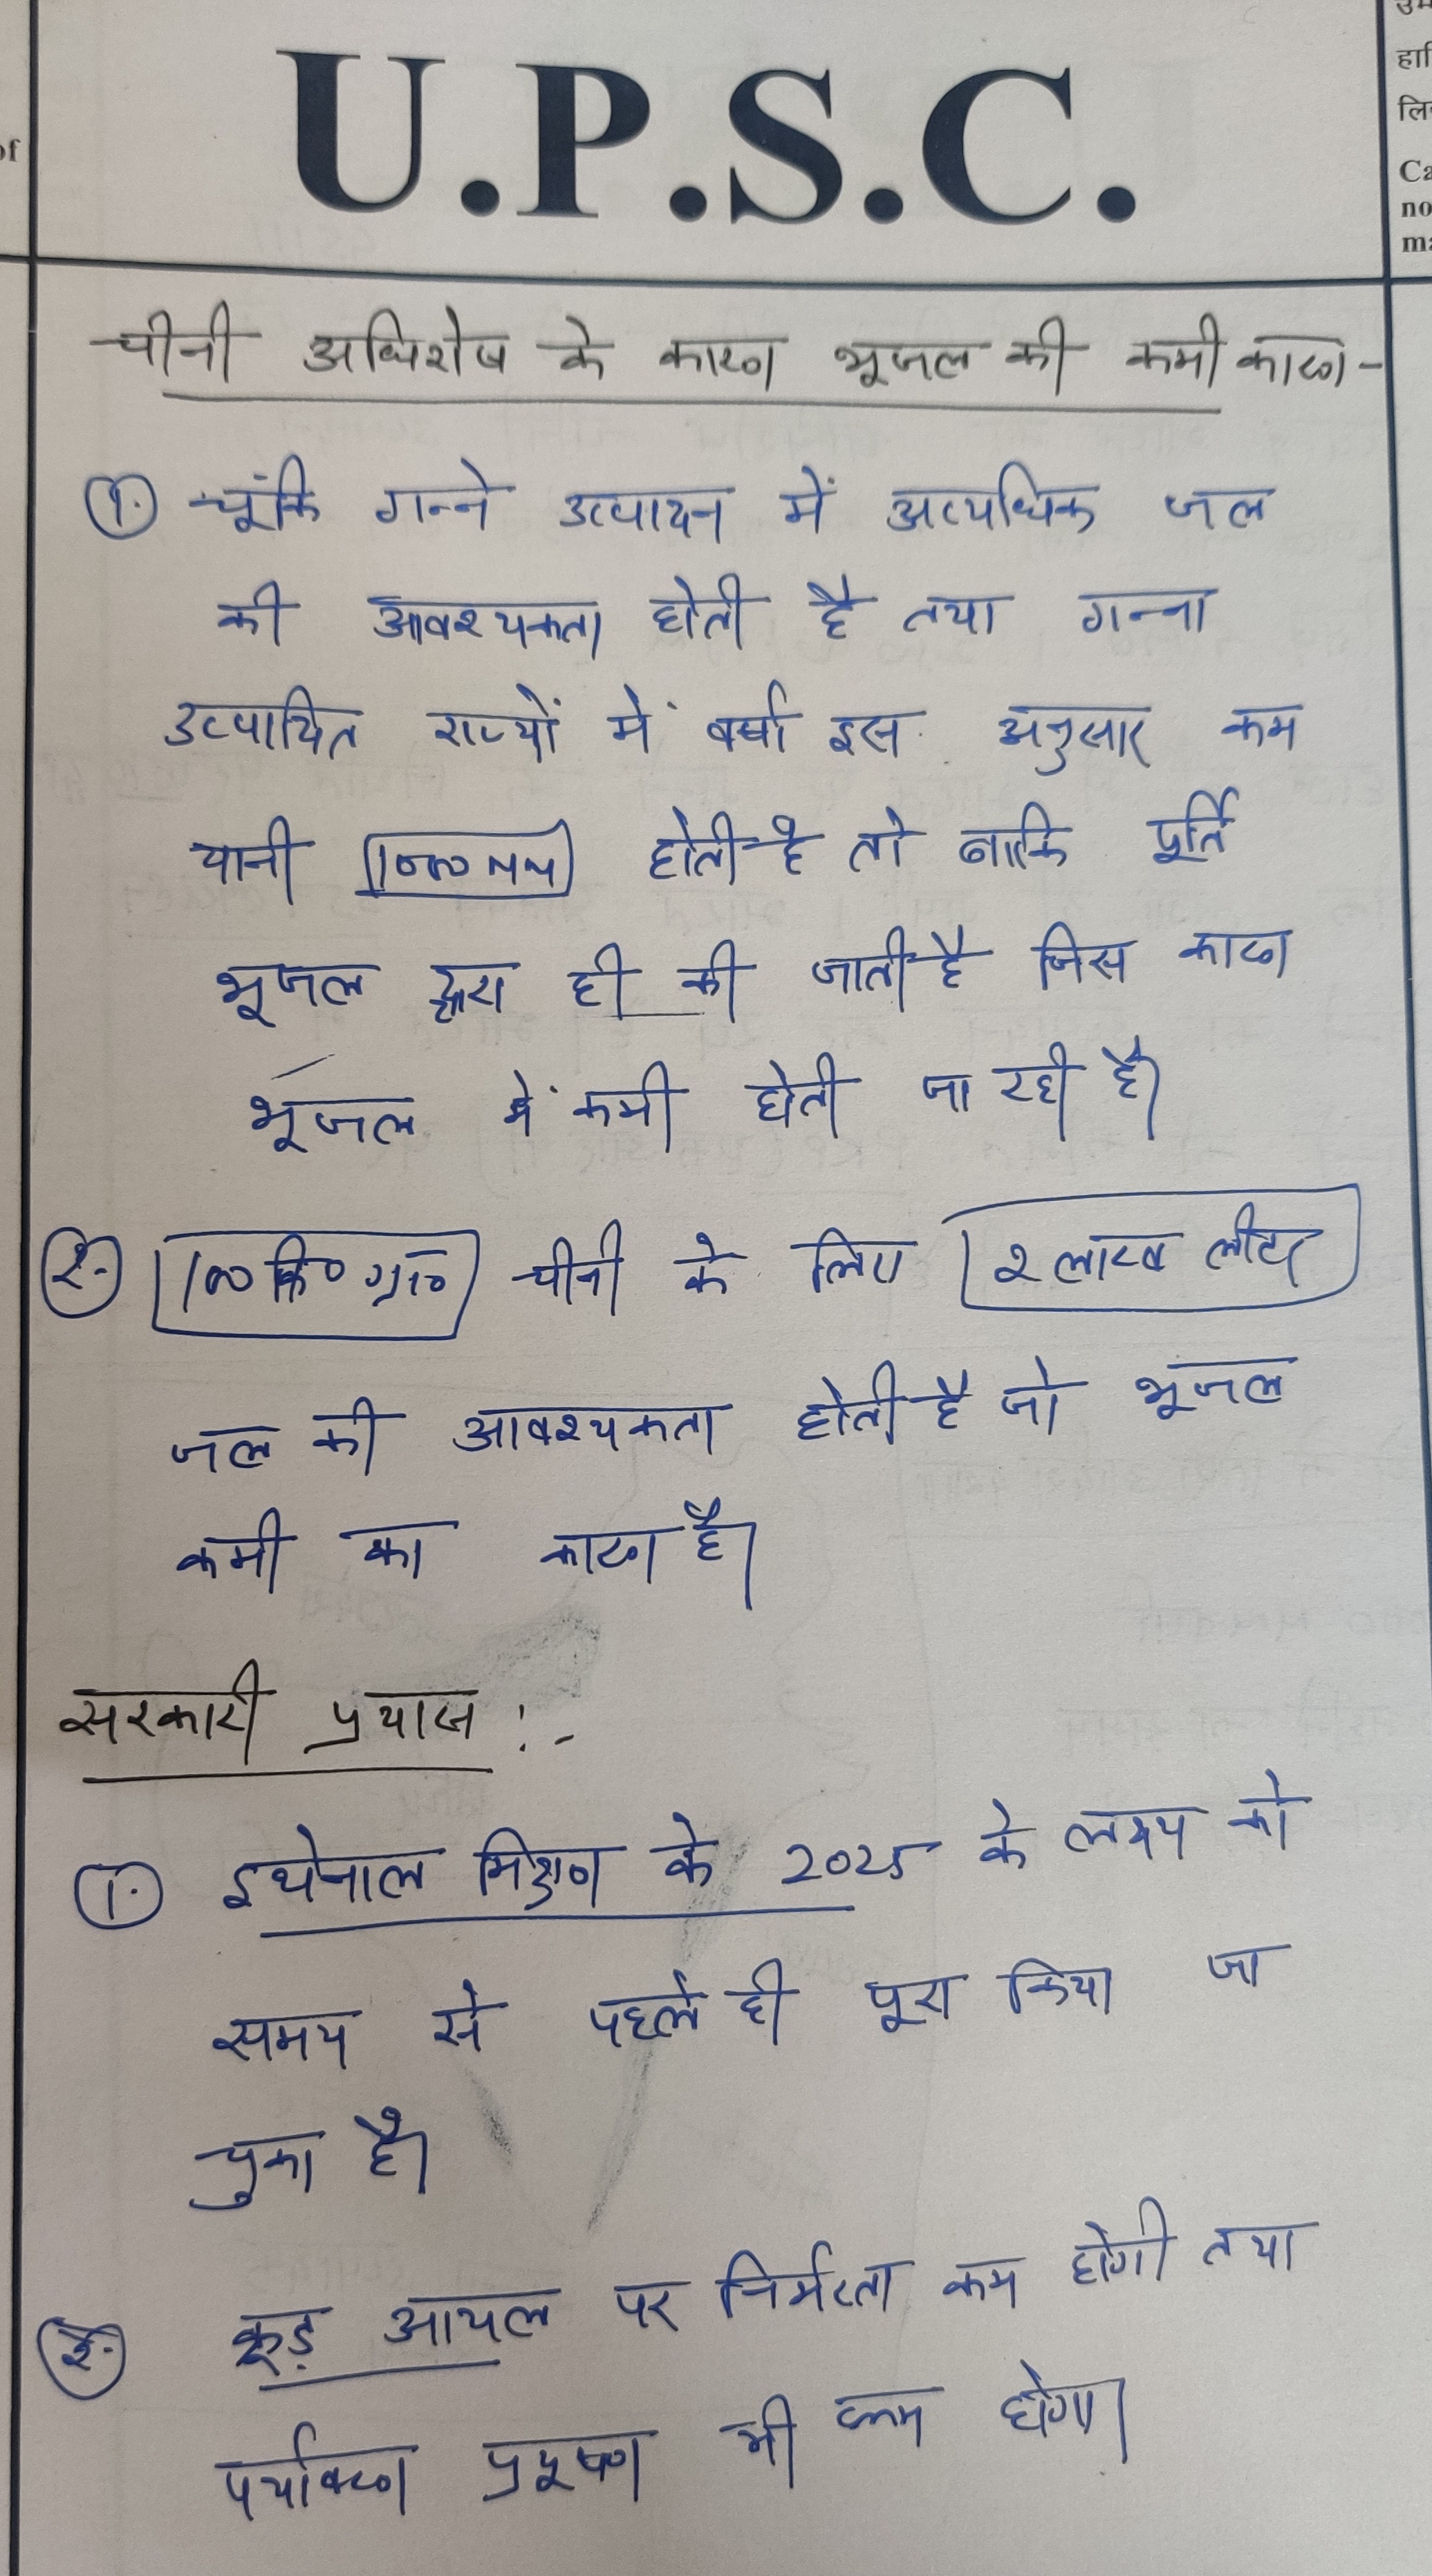 U.P.S.C.
of
उम्
हाि
लि
Ca
no
ma
चीनी अधिशेष के कारण भूजल की कमी कारण -
1. चूंकि गन्ने उत्पादन में अत्यधिक जल
की आवश्यकता होती है तथा गन्ना
उत्पादित राज्यों में वर्षा इस अनुसार कम
यानी 1000 mm होती है तो बाकि पूर्ति
भूजल द्वारा ही की जाती है जिस कारण
भूजल में कमी होती जा रही है।
2. 100 कि० ग्रा० चीनी के लिए 2 लाख लीटर
जल की आवश्यकता होती है जो भूजल
कमी का कारण है।
सरकारी प्रयास :-
1. इथेनाल मिश्रण के 2025 के लक्ष्य को
समय से पहले ही पूरा किया जा
चुका है।
2. क्रूड़ आयल पर निर्भरता कम होगी तथा
पर्यावरण प्रदूषण भी कम होगा।